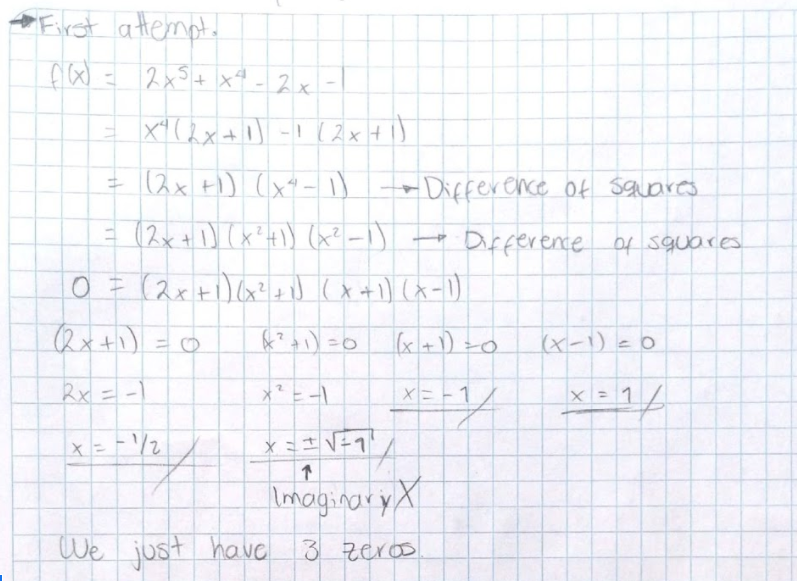 →First attempt.
f(x) = 2x⁵ + x⁴ - 2x - 1
= x⁴(2x+1) -1 (2x+1)
= (2x+1) (x⁴-1) → Difference of squares
= (2x+1)(x²+1)(x²-1) → Difference of squares
0 = (2x+1)(x²+1) (x+1)(x-1)
(2x+1) = 0 (x²+1)=0 (x+1)=0 (x-1)=0
2x = -1 x² = -1 x = -1 x = 1
x = -1/2 x = ±√-1
↑
Imaginary X
We just have 3 zeros.